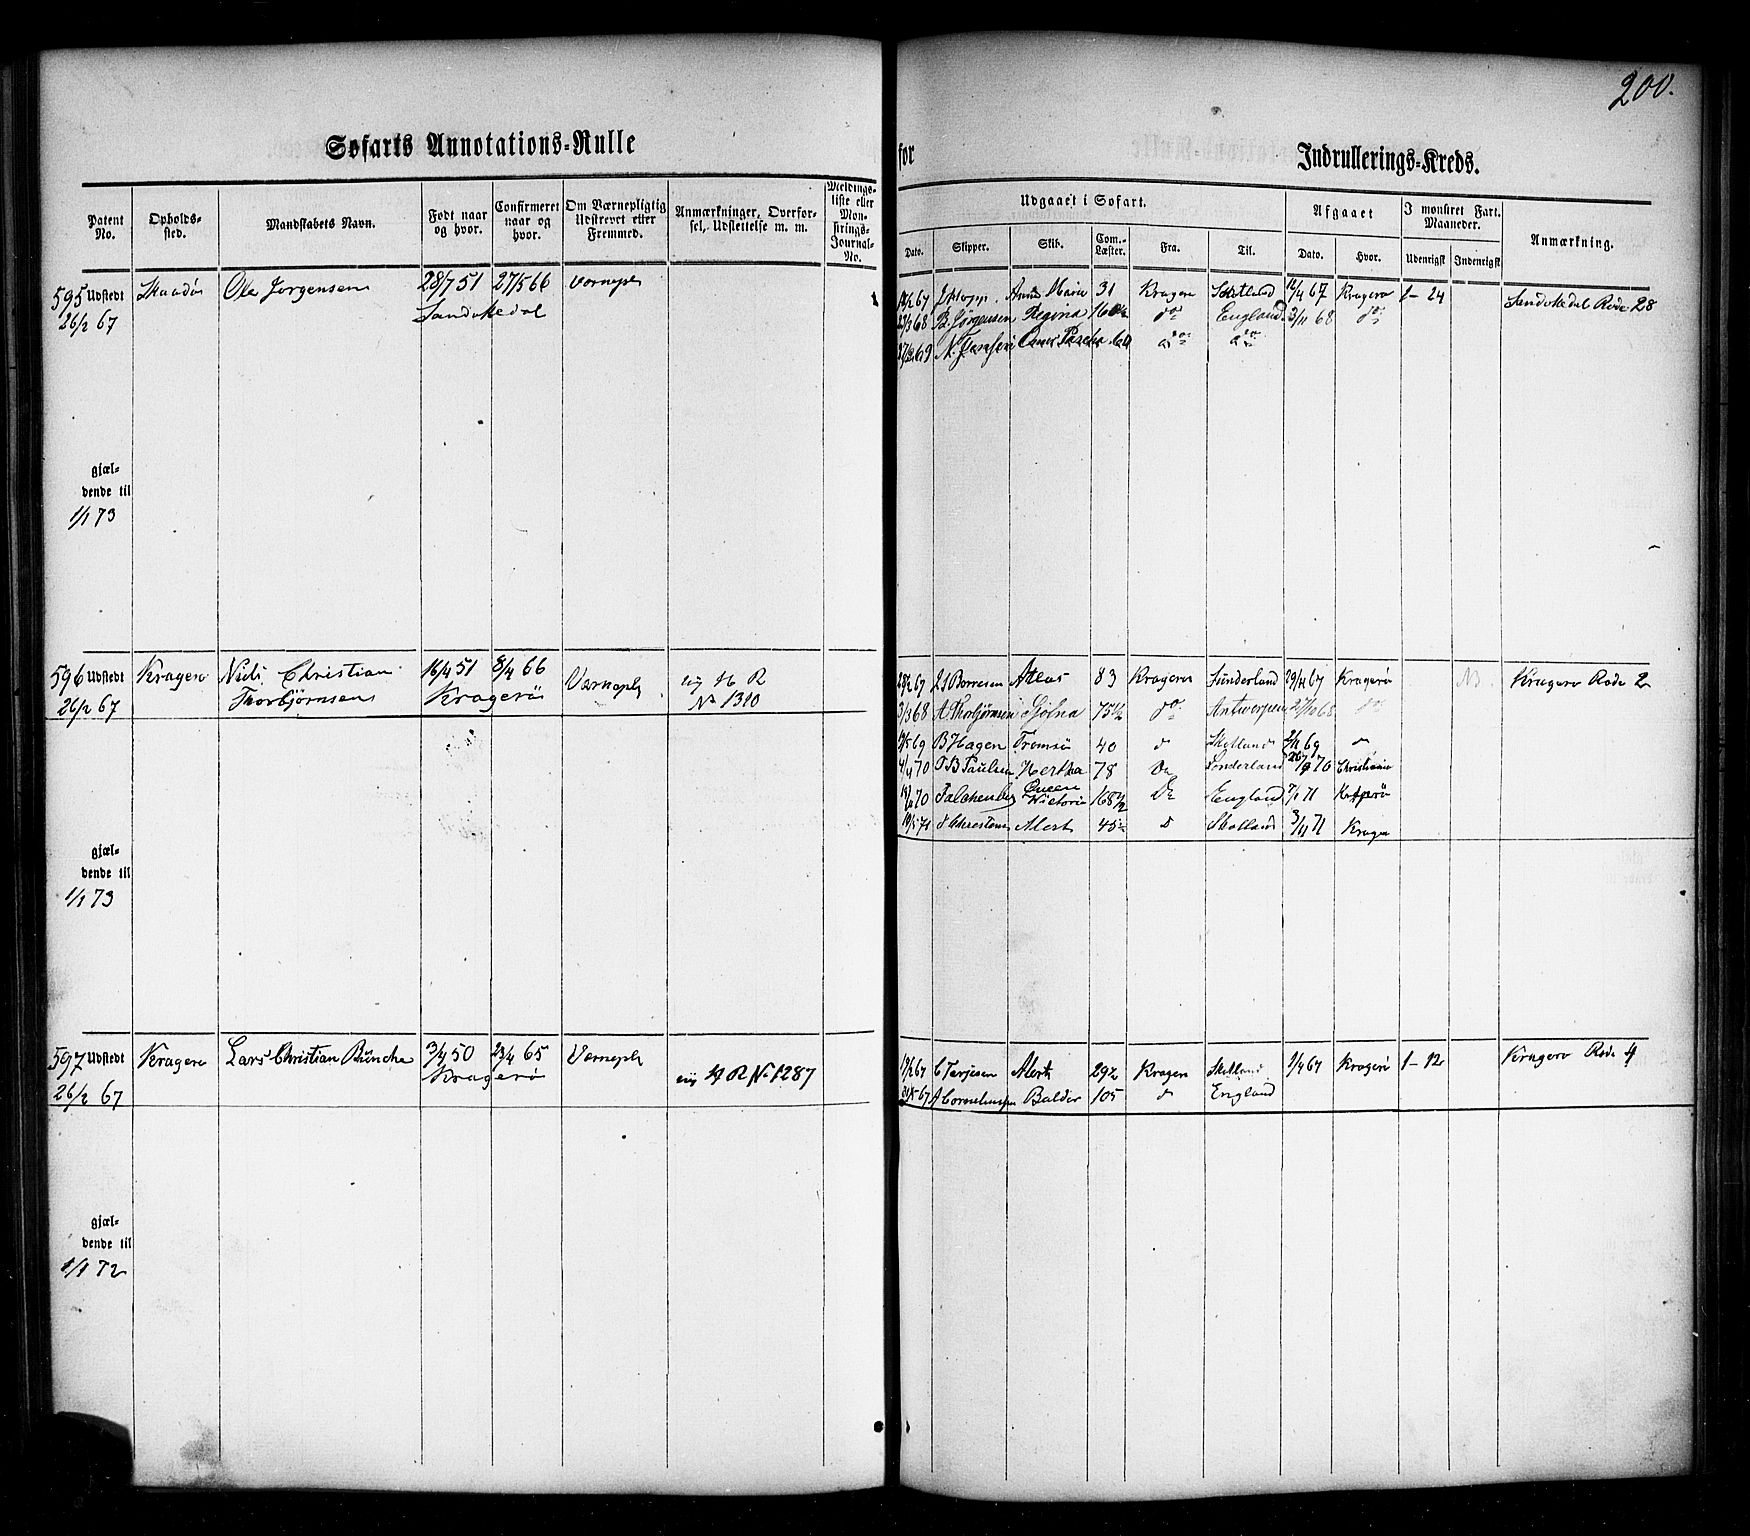 200.
Søfarts Annotations-Rulle
for
Indrullerings-Kreds.
Patent No.
Opholds-sted.
Mandskabets Navn.
Født naar og hvor.
Confirmeret naar og hvor.
Om Værnepligtig Udskrevet eller Fremmed.
Anmærkninger, Overførsel, Udslettelse m. m.
Meldings-liste eller Mønstrings-Journal-No.
Udgaaet i Søfart.
Dato. Skipper. Skib. Com.-Læster. Fra. Til.
Afgaaet
Dato. Hvor.
I mønstret Fart. Maaneder.
Udenrigsk Indenrigsk
Anmærkning.
595 Udstedt Skaadø Ole Jørgensen 28/7 51 27/5 66 Værnepl
26/2 67 Sandøkedal
Anne Maria 31 Kragerø Skotland 12/4 67 Kragerø 1–24 Sandøkedal Rode 28
27/3 68 B. Jørgensen Regina 160½ do England 3/11 68 do
69 do do
gjæl-
dende til
1/1 73
596 Udstedt Kragerø Niels Christian 16/4 51 8/4 66 Værnepl
26/2 67 Thorbjørnsen Kragerø
No 1310
67 Borresen Atlas 83 Kragerø Sunderland 29/11 67 Kragerø Kragerø Rode 2
3/3 68 A Thorbjørnsen 75½ do Antwerpen 68 do
69 B Hagen Tromsø 40 d Skotland 69
4/4 70 P B Paulsen Hertha 78 Do Sonderland 70 Christiania
70 Falchenberg Queen Victoria 168½ Do England 7/1 71
71 Christensen Alert 45 d Skotland 3/11 71 Kragerø
gjæl-
dende til
1/1 73
597 Udstedt Kragerø Lars Christian Bünche 3/4 50 23/4 65 Værnepl
26/2 67 Kragerø H R No 1287
67 C Terjesen Alert Kragerø Skotland 1/4 67 Kragerø 1–12 Kragerø Rode 4
67 A Corneliussen Balder 105 d England
gjæl-
dende til
1/1 72